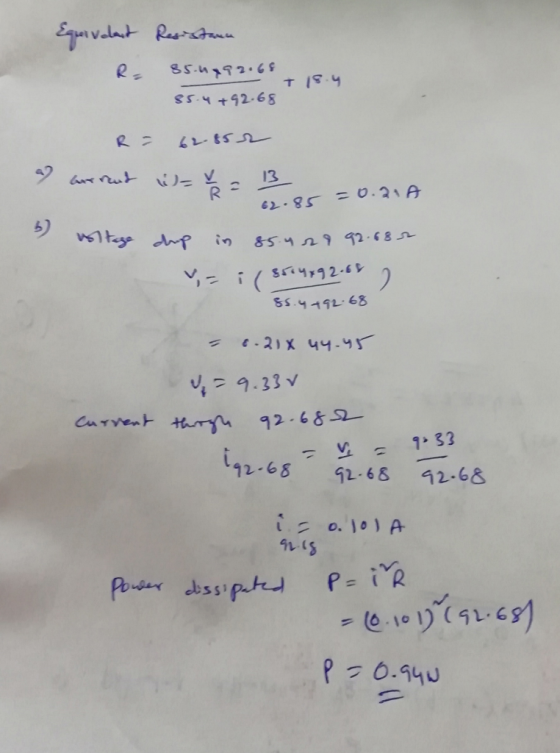 Equivalent Resistance
R = 85.4×92.68 / 85.4+92.68 + 18.4
R = 62.85 Ω
a) current (i) = V/R = 13 / 62.85 = 0.21 A
b) voltage drop in 85.4 Ω & 92.68 Ω
V₁ = i ( 85.4×92.68 / 85.4+92.68 )
= 0.21 × 44.45
V₁ = 9.33 V
Current through 92.68 Ω
i92.68 = V₁ / 92.68 = 9.33 / 92.68
i92.68 = 0.101 A
Power dissipated P = i²R
= (0.101)² (92.68)
P = 0.94W